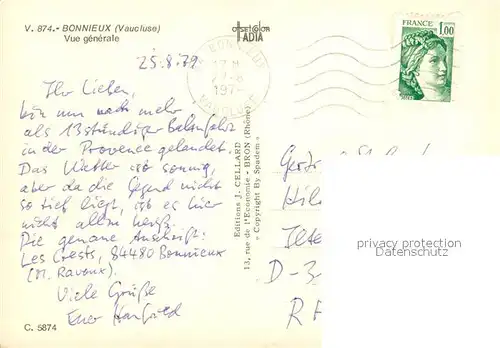 V. 874.- BONNIEUX (Vaucluse)
Vue générale
offset color
IADIA
FRANCE
1,00
BONNIEUX
17 H
197
VAUCLUSE
25.8.79
Ihr Lieben,
bin nun nach mehr
als 13stündiger Bahnfahrt
in der Provence gelandet.
Das Wetter ist sonnig,
aber da die Gegend nicht
so tief liegt, ist es hier
nicht allzu heiß.
Die genaue Anschrift:
Les Crests, 84480 Bonnieux
(M. Ravoux).
Viele Grüße
Euer Hanfried
Editions J. CELLARD
13, rue de l'Economie - BRON (Rhône)
« Copyright By Spadem »
D-3
R F
privacy protection
Datenschutz
C. 5874